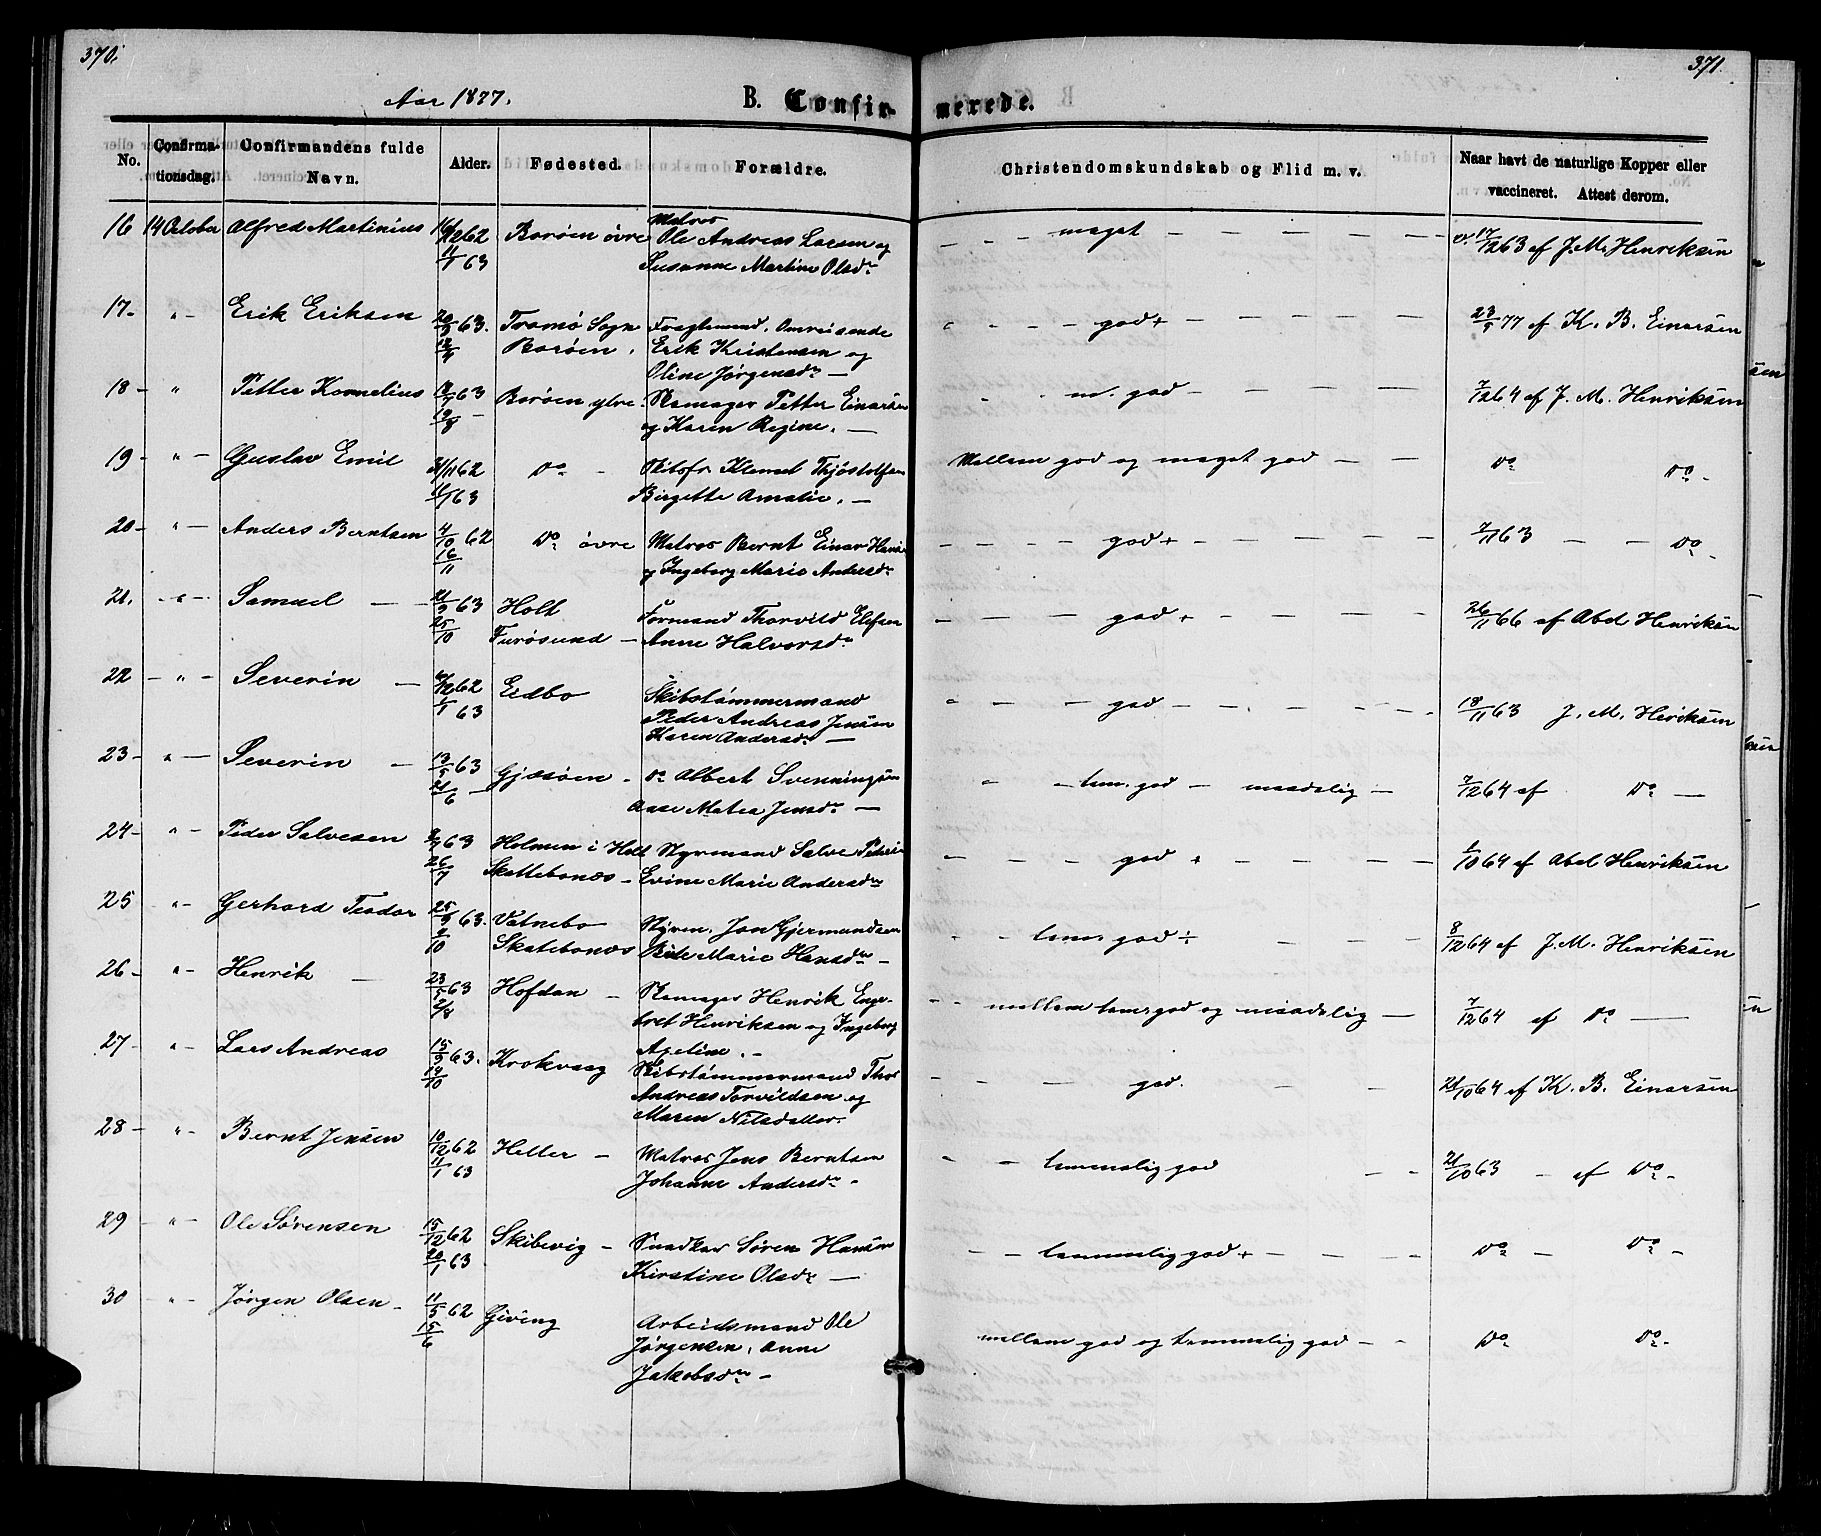 370.
371.
Aar 1877.
B. Confirmerede.
No.
Confirmationsdag.
Confirmandens fulde Navn.
Alder.
Fødested.
Forældre.
Christendomskundskab og Flid m. v.
Naar havt de naturlige Kopper eller vaccineret. Attest derom.
16 14 October Alfred Martinius 16/12 62 Borøen øvre Matros
11/1 63 Ole Andreas Larsen og
Susanne Martine Olsdr
- - - meget - - - - - v. 17/12 63 af J. M. Henriksen
17- " - Erik Eriksen 63. Tromø Sogn Fragtemand, Omreisende
Borøen. Erik Kristensen og
Oline Jørgensdr -
" - - - god + - - - - - 23/5 77 af K. B. Einarsen
18- " Petter Kornelius 63 Borøen ytre. Skomager Petter Einarsen
og Karen Regine. -
- - m. god - - - - - 7/12 64 af J. M. Henriksen
19- " - Gustav Emil 62 Do - Skibsfr Klemet Thjøstolfsen
63 Birgette Amalie. -
Mellem god og meget god - - Do Do -
20- " - Anders Berntsen 4/10 62 Do øvre Matros Bernt Einar
16/11 og Ingeborg Marie Andersdr
- - - - god + - - - - - 7/11 63 - - Do -
21. " - Samuel - - 21/9 63 Holt Formand Thorvild Elefsen
25/10 Furøsund - Anne Halvorsdr
- - - god + - - - - - 26/11 66 af Abel Henriksen
22 - " - Severin - 62 Eidbo Skibstømmermand
1/1 63 Peder Andreas Jensen
Karen Andersdr -
" - - god - - - - - 18/11 63 J. M. Heriksen
23- " - Severin - 13/5 63 Gjessøen - Do Albert Svenningsen
21/6 - Aase Matea Jensdr -
" - tem. god - maadelig - 7/12 64 af Do -
24- " - Peder Salvesen 63 Holmen i Holt Styrmand Salve
26/7 Skattebonæs - Evine Marie Andersdr
- - god + - - - - 1/10 64 af Abel Henriksen
25 " - Gerhard Teodor 25/9 63. Vatnebo Styrm. Jon Gjermundsen
9/10 Skatebonæs Marie Hansdr -
- - temr god ÷ - - - - 8/12 64 af J. M. Henriksen
26- " - Henrik - 23/5 63 Hofdan - Skomager Henrik Enge-
2/8 bret Henriksen og Ingeborg
Axeline. -
- - mellem temr god og maadelig - 7/12 64 af Do -
27- " - Lars Andreas 15/9 63. Krokvaag Skibstømmermand Thor
14/10 Andreas Torvildsen og
Maren Nilsdatter.
- - - god. - - 21/10 64 af K. B. Einarsen
28- " - Bernt Jensen 10/12 62 Heller - Matros Jens Berntsen
11/1 63 Johanne Andersdr -
- - temmelig god - - 21/10 63 - af Do -
29 - " - Ole Sørensen 15/12 62 Skibevig - Snedker Søren Hansen
20/1 63 Kirstine Olsdr -
- - temmelig god + - - - - Do - Do -
30 - " - Jørgen Olsen - 11/5 62 Giving Arbeidsmand Ole
15/6 Jørgensen, Anne
Jakobsdr -
mellem god og temmelig god - - Do Do -